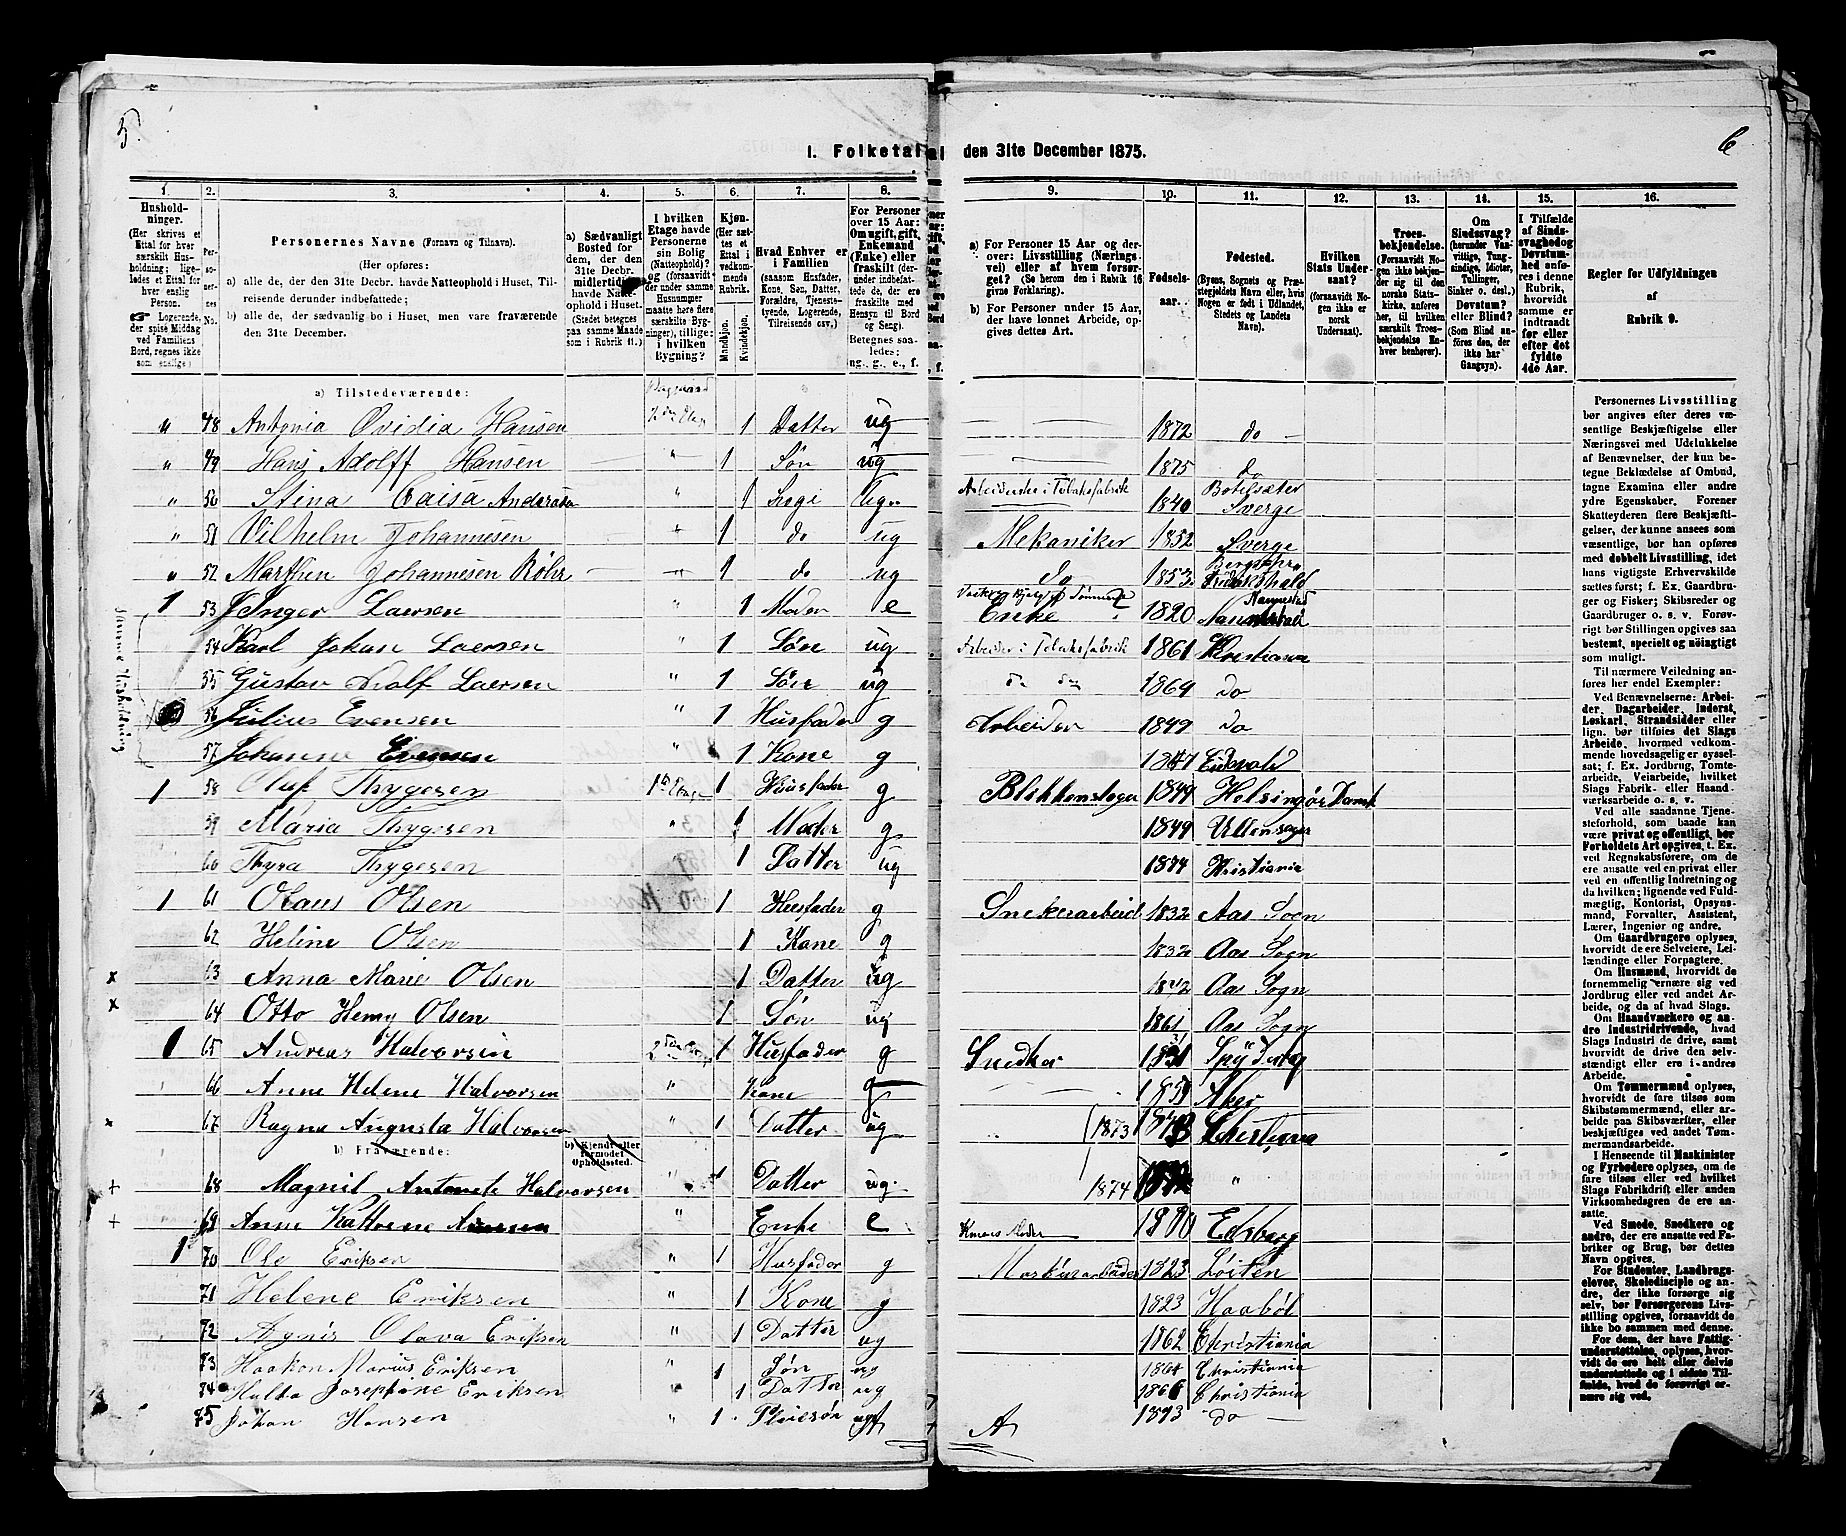 5.
6
I. Folketal den 31te December 1875.
1.
2.
3.
4.
5.
6.
7.
8.
9.
10.
11.
12.
13.
14.
15.
16.
Husholdninger.
(Her skrives et Ettal for hver særskilt Husholdning; ligeledes et Ettal for hver enslig Person.
Logerende, der spise Middag ved Familiens Bord, regnes ikke som enslige.)
Personernes No.
Personernes Navne (Fornavn og Tilnavn).
(Her opføres:
a) alle de, der den 31te Decbr. havde Natteophold i Huset, Tilreisende derunder indbefattede;
b) alle de, der sædvanlig bo i Huset, men vare fraværende den 31te December.
a) Sædvanligt Bosted for dem, der den 31te Decbr. midlertidig havde Natteophold i Huset.
(Stedet betegnes paa samme Maade som i Rubrik 11.)
I hvilken Etage havde Personerne sin Bolig (Natteophold)? og (forsaavidt der under samme Husnummer maatte høre flere særskilte Bygninger), tillige: i hvilken Bygning?
Kjøn.
(Her sættes et Ettal i vedkommende Rubrik.
Mandkjøn.
Kvindekjøn.
Hvad Enhver er i Familien
(saasom Husfader, Kone, Søn, Datter, Forældre, Tjenestetyende, Logerende, Tilreisende osv.)
For Personer over 15 Aar: Om ugift, gift, Enkemand (Enke) eller fraskilt (derunder indbefattede, der ere fraskilte med Hensyn til Bord og Seng).
Betegnes saaledes: ug., g., e., f.
a) For Personer 15 Aar og derover: Livsstilling (Næringsvei) eller af hvem forsørget? (Se herom den i Rubrik 16 givne Forklaring).
b) For Personer under 15 Aar, der have lønnet Arbeide, opgives dettes Art.
Fødselsaar.
Fødested.
(Byens, Sognets og Præstegjeldets Navn, eller, hvis Nogen er født i Udlandet, Stedets og Landets Navn).
Hvilken Stats Undersaat?
(forsaavidt Nogen ikke er norsk Undersaat).
Troesbekjendelse.
(Forsaavidt Nogen ikke bekjender sig til den norske Statskirke, anføres her, til hvilken særskilt Troesbekjendelse Enhver henhører).
Om Sindssvag? (herunder Vanvittige, Tungsindige, Idioter, Tullinger, Sinker o. desl.)
Døvstum? eller Blind?
(Som Blind anføres den, der ikke har Gangsyn).
I Tilfælde af Sindssvaghed og Døvstumhed anføres i denne Rubrik, hvorvidt samme er indtraadt før eller efter det fyldte 4de Aar.
Regler for Udfyldningen
af
Rubrik 9.
a) Tilstedeværende:
Baggaard
2den Etag
" 48 Antonia Ovidia Hansen 1 Datter ug 1872 do
" 49 Hans Adolff Hansen " 1 Søn ug 1875 do
" 50 Stina Caisa Andersen " 1 Logi ug. Arbeiderske i Tobaksfabrik 1840 Sverge
" 51 Vilhelm Johannesen " 1 do ug Mekaniker 1852 Sverge
" 52 Marthen Johannesen Röhr " 1 do ug do 1853
1 53 Inger Laersen " 1 Moder e Enke 1820 Nannestad
54 Karl Johan Laersen " 1 Søn ug Arbeider i Tobaksfabrik 1861 Kristiania
55 Gustav Adolf Laersen " 1 Søn ug do do 1869 do
56 Julius Evensen " 1 Husfader g Arbeider 1849 do
57 Johanne Evensen " 1 Kone g 1847 Eidsvold
Samme Husholdning
1 58 Oluf Thygesen 1ste Etage 1 Huusfader g Blikkenslager 1849 Helsingør Dank
59 Maria Thygesen " 1 Moder g 1849 Ullensager
60 Thyra Thygesen " 1 Datter ug 1874 Kristiania
1 61 Olaus Olsen 1 Husfader g Snekerarbeid 1832 Aas Sogn
62 Heline Olsen 1 Kone g 1832 Aas Sogn
x 63 Anna Marie Olsen 1 Datter ug Aas Sogn
x 64 Otto Henry Olsen 1 Søn ug 1861 Aas Sogn
1 65 Andreas Halvorsen 1 Husfader g Snedker 1831 Spydeberg
66 Anne Helene Halvorsen " Kone g Aker
x 67 Ragna Augusta Halvorsen " 1 Datter ug 1873 Christiania
b) Fraværende:
b) Kjendt eller formodet Opholdssted.
+ 68 Magnil Antonete Halvorsen " 1 Datter ug. 1874 "
+ 69 Anne Kathrine " Enke e Konens Moder 1800 Edsberg
1 70 Ole Eriksen " 1 Husfader g Maskinarbeider 1823 Løiten
71 Helene Eriksen " 1 Kone g 1823 Haabøl
72 Agnis Olava Eriksen " 1 Datter ug 1862 Christiania
73 Haakon Marius Eriksen " 1 Søn ug 1864 Christiania
74 Hulda Josephine Eriksen " 1 Datter ug 1866 Christiania
75 Johan Hansen " 1 Pleiesøn ug 1873 do
Personernes Livsstilling bør angives efter deres væsentlige Beskjæftigelse eller Næringsvei med Udelukkelse af Benævnelser, der kun betegne Beklædelse af Ombud, tagne Examina eller andre ydre Egenskaber. Forener Skatteyderen flere Beskjæftigelser, der kunne ansees som væsentlige, bør han opføres med dobbelt Livsstilling, idet hans vigtigste Erhvervskilde sættes først; f. Ex. Gaardbruger og Fisker; Skibsreder og Gaardbruger o. s. v. Forøvrigt bør Stillingen opgives saa bestemt, specielt og nøiagtigt som muligt.
Til nærmere Veiledning anføres her endel Exempler:
Ved Benævnelserne: Arbeider, Dagarbeider, Inderst, Løskarl, Strandsidder eller lign. bør tilføies det Slags Arbeide, hvormed vedkommende hovedsagelig er sysselsat; f. Ex. Jordbrug, Tomtearbeide, Veiarbeide, hvilket Slags Fabrik- eller Haandværksarbeide o. s. v.
Ved alle saadanne Tjenesteforhold, som baade kan være privat og offentligt, bør Forholdets Art opgives, t. Ex. ved Regnskabsførere, om de ere ansatte ved en privat eller ved en offentlig Indretning og da hvilken; lignende ved Fuldmægtig, Kontorist, Opsynsmand, Forvalter, Assistent, Lærer, Ingeniør og andre.
Om Gaardbrugere oplyses, hvorvidt de ere Selveiere, Leilændinge eller Forpagtere.
Om Husmænd, hvorvidt de fornemmelig ernære sig ved Jordbrug eller ved andet Arbeide, og da af hvad Slags.
Om Haandværkere og andre Industridrivende, hvad Slags Industri de drive, samt hvorvidt de drive den selvstændigt eller ere i andres Arbeide.
Om Tømmermænd oplyses, hvorvidt de fare tilsøs som Skibstømmermænd, eller arbeide paa Skibsværfter, eller beskjæftiges ved andet Tømmermandsarbeide.
I Henseende til Maskinister og Fyrbødere oplyses, om de fare tilsøs eller ved hvilket Slags Fabrikdrift eller anden Virksomhed de ere ansatte.
Ved Smede, Snedkere og andre, der ere ansatte ved Fabriker og Brug, bør dettes Navn opgives.
For Studenter, Landbrugselever, Skoledisciple og andre, der ikke forsørge sig selv, bør Forsørgerens Livsstilling opgives, forsaavidt de ikke bo sammen med denne.
For dem, der have Fattigunderstøttelse, oplyses, hvorvidt de ere helt eller delvis understøttede og i sidste Tilfælde, hvad de forøvrigt ernære sig ved.